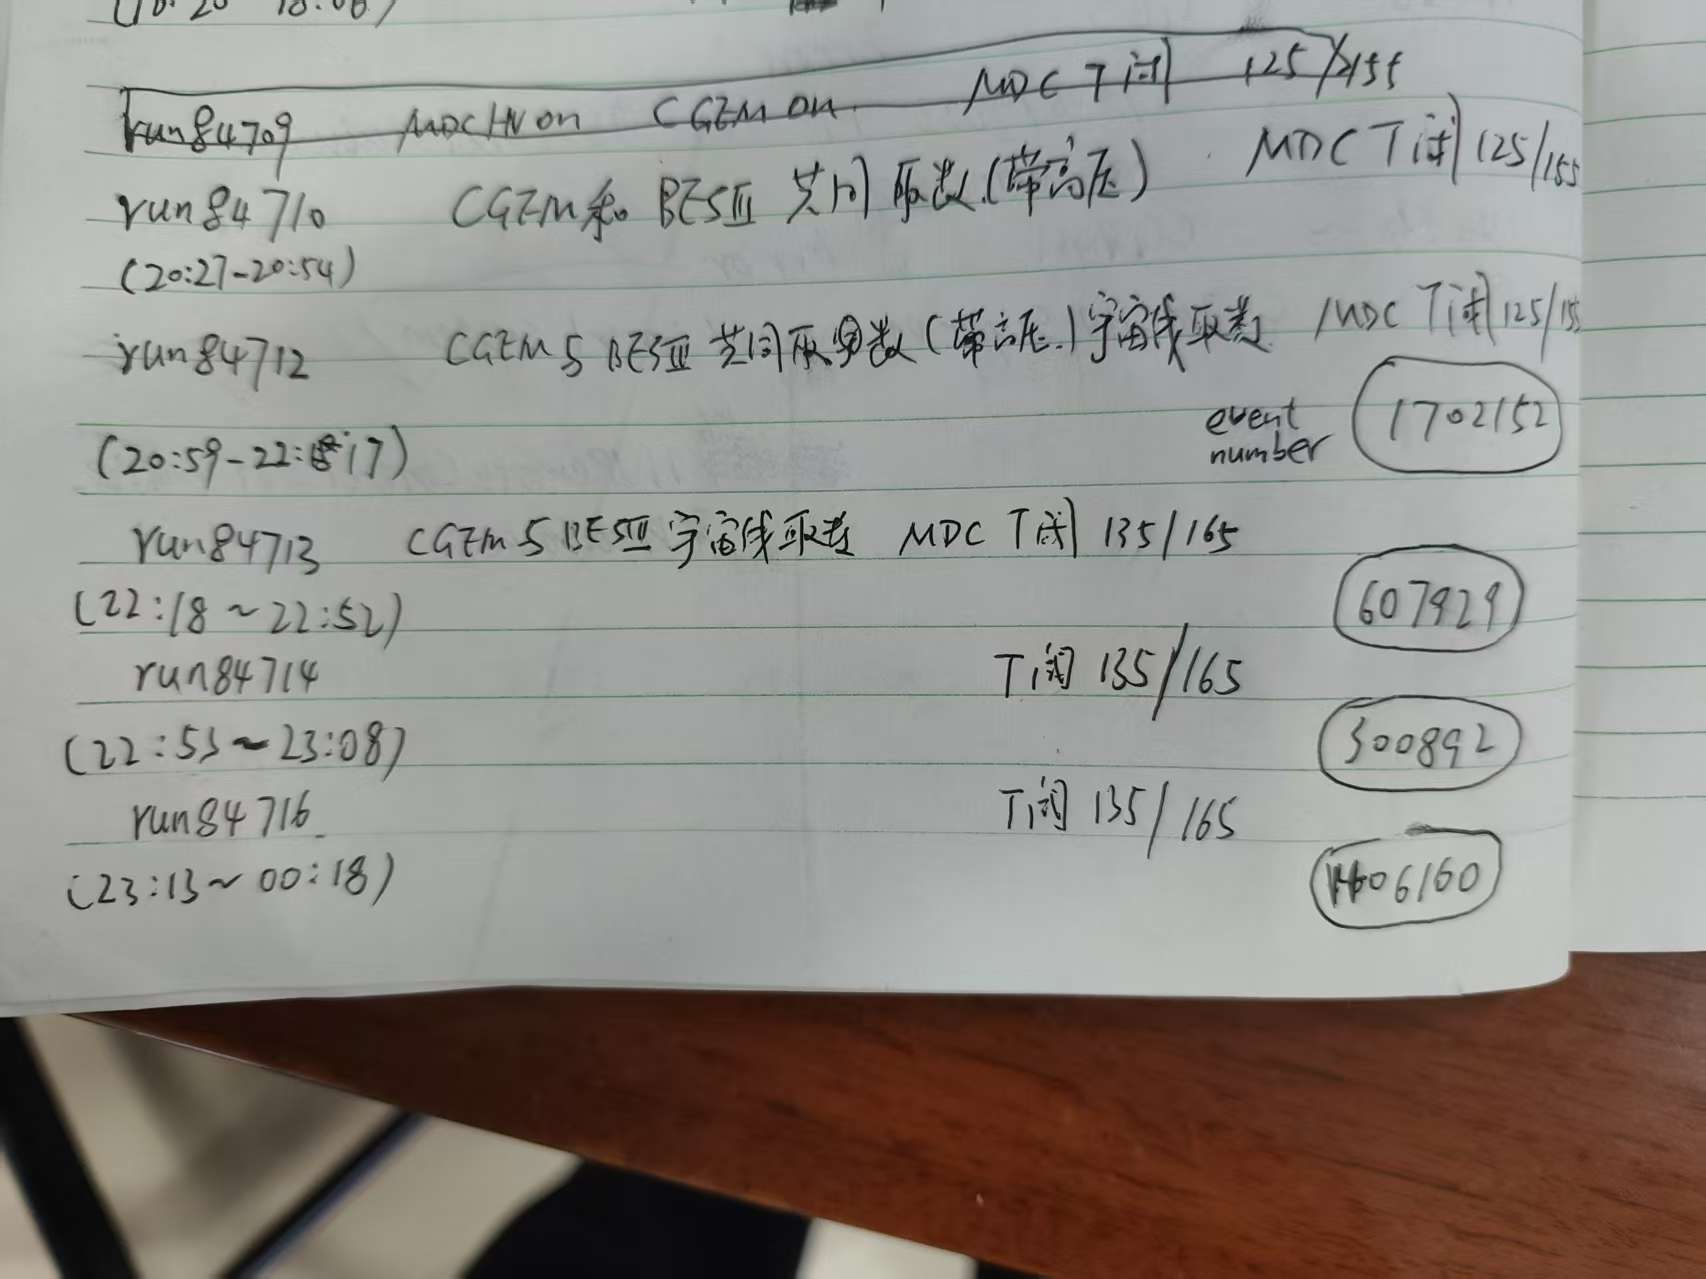 run84709 MDC HV on CGEM on. MDC T阈 125/155
run84710 CGEM和 BESIII 共同取数(带高压) MDC T阈 125/155
(20:27-20:54)
run84712 CGEM与 BESIII 共同取数(带高压)宇宙线取数 MDC T阈 125/155
event
number 1702152
(20:59-22:17)
run84713 CGEM与BESIII 宇宙线取数 MDC T阈 135/165
607929
(22:18~22:52)
run84714 T阈 135/165
(22:53~23:08) 300892
run84716 T阈 135/165
(23:13~00:18)